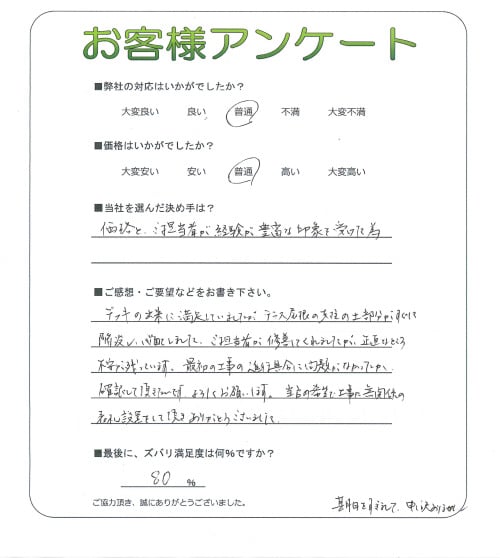 お客様アンケート
■弊社の対応はいかがでしたか？
大変良い 良い 普通 不満 大変不満
■価格はいかがでしたか？
大変安い 安い 普通 高い 大変高い
■当社を選んだ決め手は？
価格と、ご担当者が経験が豊富な印象を受けた為
■ご感想・ご要望などをお書き下さい。
デッキの出来に満足していましたが テラス屋根の支柱の土部分がすぐに
陥没し、心配しました、ご担当者が修善してくれましたが、正直なところ
不安が残っています。最初の工事の進行具合に問題がなかったか、
確認して頂きたいです よろしくお願いします。当方の希望で工事に無関係の
表札設置をして頂き ありがとうございました
■最後に、ズバリ満足度は何％ですか？
80 ％
ご協力頂き、誠にありがとうございました。
期日をすぎて、申し訳ありません